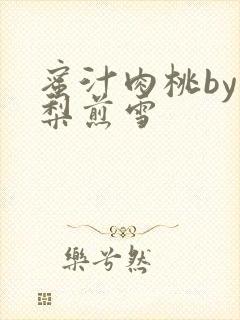 蜜汁肉桃by
梨煎雪
樂兮然